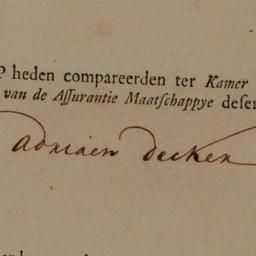 P heden compareerden ter Kamer
van de Aſſurantie Maatſchappye deſer
adriaen decker